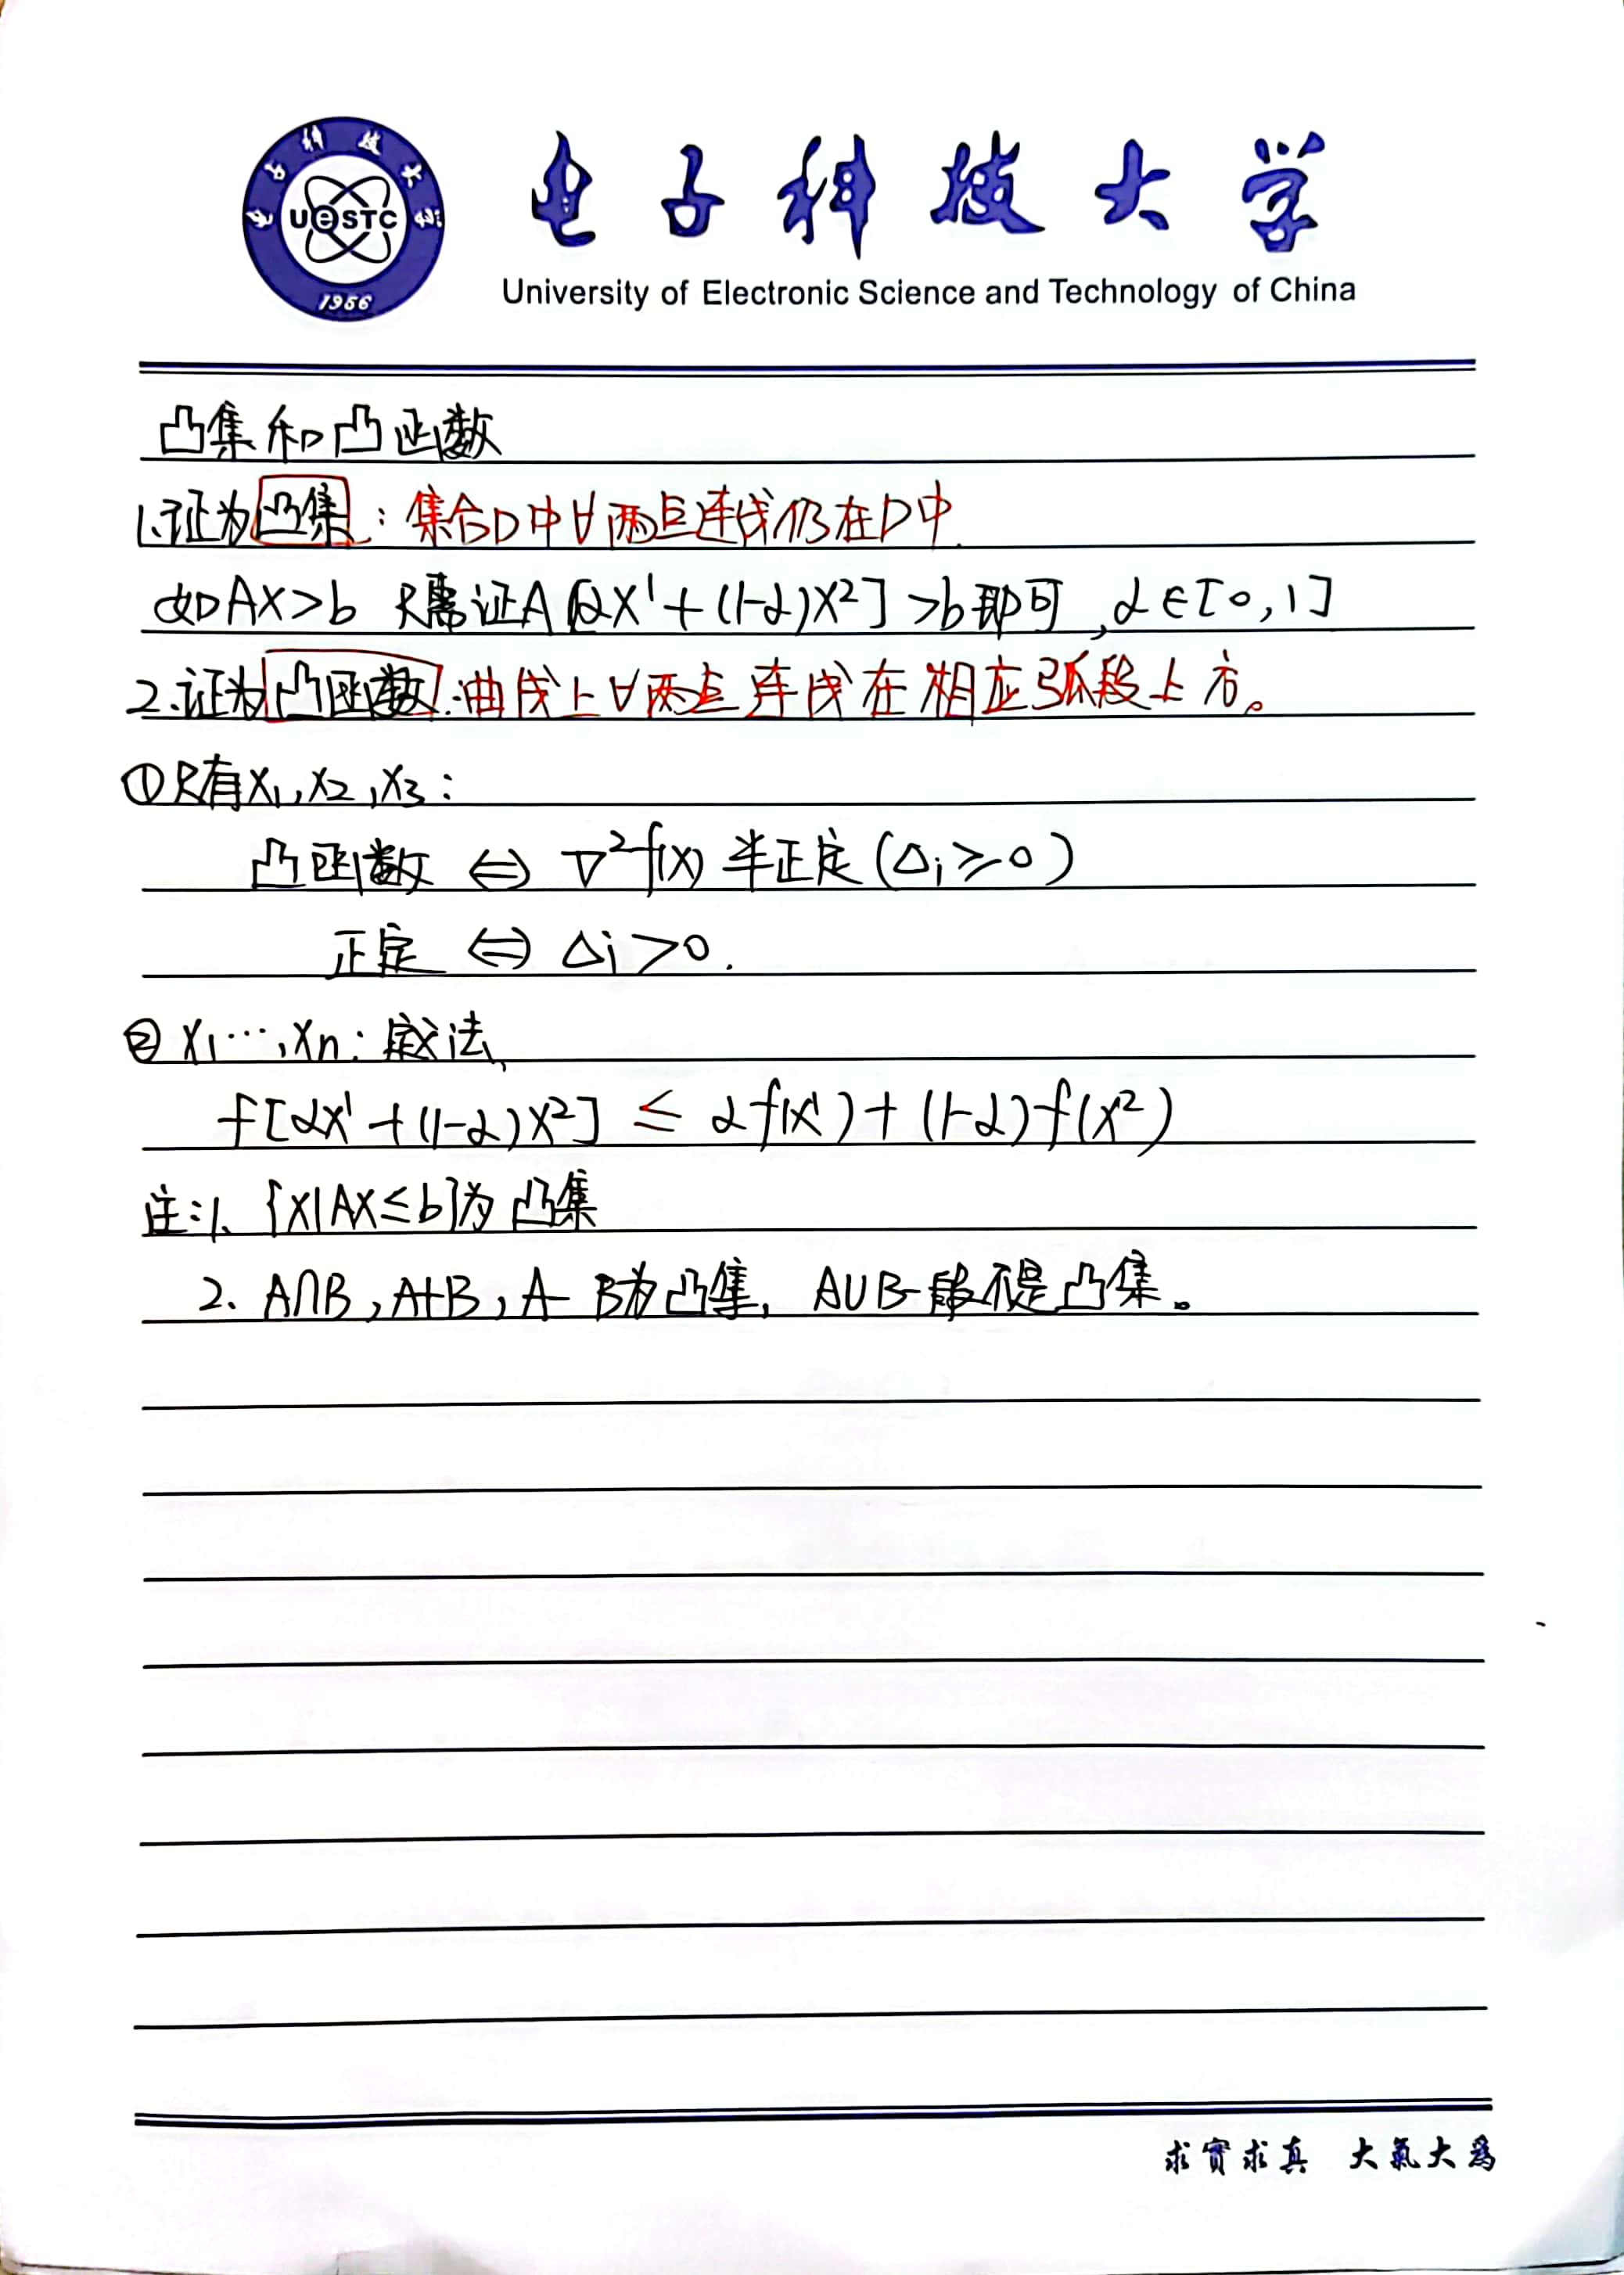 电子科技大学
UESTC
1956
电子科技大学
University of Electronic Science and Technology of China
凸集和凸函数
1.证为凸集：集合D中∀两点连线仍在D中.
如AX>b 只需证A[αX¹+(1-α)X²]>b即可,α∈[0,1]
2.证为凸函数:曲线上∀两点连线在相应弧段上方。
①只有X₁,X₂,X₃:
凸函数 ⇔ ∇²f(X) 半正定(Δi≥0)
正定 ⇔ Δi>0.
② X₁…,Xn: 定义法
f[αX¹+(1-α)X²] ≤ αf(X¹)+(1-α)f(X²)
注:1、{X|AX≤b}为凸集
2、A∩B,A+B,A-B为凸集,A∪B一般不是凸集。
求實求真 大氣大為